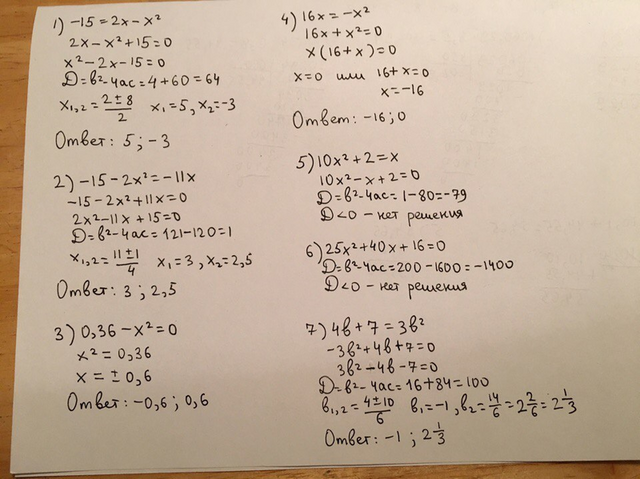 1) -15 = 2x - x²
2x - x² + 15 = 0
x² - 2x - 15 = 0
D = b² - 4ac = 4 + 60 = 64
x₁,₂ = (2 ± 8)/2 x₁ = 5, x₂ = -3
Ответ: 5 ; -3
2) -15 - 2x² = -11x
-15 - 2x² + 11x = 0
2x² - 11x + 15 = 0
D = b² - 4ac = 121 - 120 = 1
x₁,₂ = (11 ± 1)/4 x₁ = 3, x₂ = 2,5
Ответ: 3 ; 2,5
3) 0,36 - x² = 0
x² = 0,36
x = ± 0,6
Ответ: -0,6 ; 0,6
4) 16x = -x²
16x + x² = 0
x(16 + x) = 0
x = 0 или 16 + x = 0
x = -16
Ответ: -16 ; 0
5) 10x² + 2 = x
10x² - x + 2 = 0
D = b² - 4ac = 1 - 80 = -79
D < 0 - нет решения
6) 25x² + 40x + 16 = 0
D = b² - 4ac = 200 - 1600 = -1400
D < 0 - нет решения
7) 4b + 7 = 3b²
-3b² + 4b + 7 = 0
3b² - 4b - 7 = 0
D = b² - 4ac = 16 + 84 = 100
b₁,₂ = (4 ± 10)/6 b₁ = -1, b₂ = 14/6 = 2 2/6 = 2 1/3
Ответ: -1 ; 2 1/3